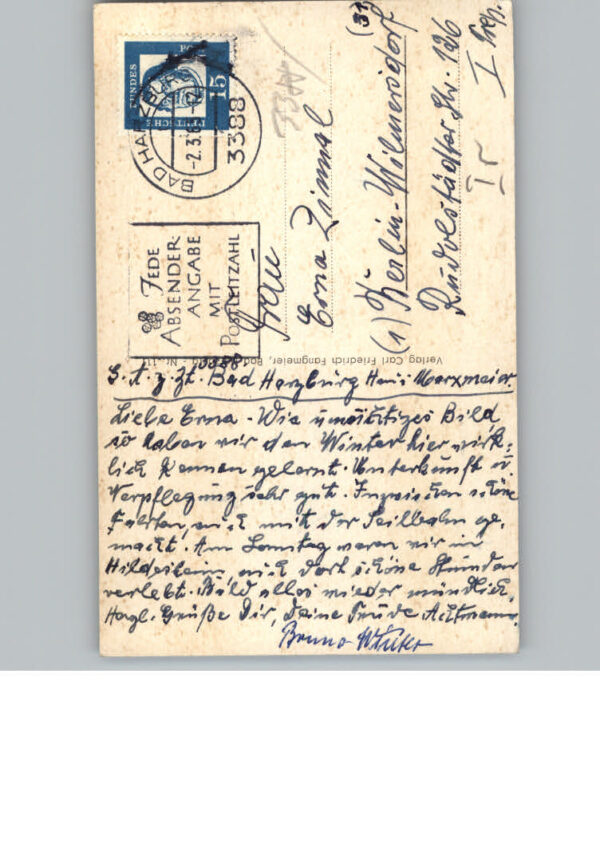 DEUTSCHE
BUNDES
15
BAD HARZBURG
-2.3.6
3388
JEDE
ABSENDER
ANGABE
MIT
POSTLEITZAHL
Frau
Erna Zimmal
(1) Berlin-Wilmersdorf
(31)
Rudolstädter Str. 126
I
Verlag Carl Friedrich Fangmeier, Bad
3388
z. Zt. Bad Harzburg Haus Marxmeier
Liebe Erna - Wie umseitiges Bild
so haben wir den Winter hier wirk=
lich kennen gelernt. Unterkunft u.
Verpflegung sehr gut. Inzwischen schöne
Fahrten, auch mit der Seilbahn ge,
macht. Am Samstag waren wir in
Hildesheim, auch dort schöne Stunden
verlebt. Bald alles wieder mündlich.
Herzl. Grüße Dir, Deine Trude
Bruno